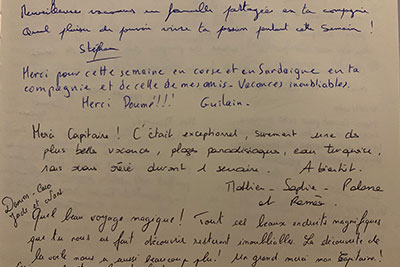 Merveilleuse vacances en famille partagée en ta compagnie
Quel plaisir de pouvoir vivre ta passion pendant cette semaine !
Stéphan
Merci pour cette semaine en corse et en Sardaigne en ta
compagnie et de celle de mes amis - Vacances inoubliables.
Merci Doumé!!! Guilain.
Merci Capitaine ! C'était exceptionnel, surement une des
plus belles vacances, plages paradisiaques, eau turquoise,
nous avons rêvé durant 1 semaine. A bientôt.
Mathieu - Sophie - Palome
et
Quel beau voyage magique ! Tout ces beaux endroits magnifiques
que tu nous as fait découvrir resteront inoubliables. La découverte de
la voile nous a aussi beaucoup plu! Un grand merci mon Capitaine!